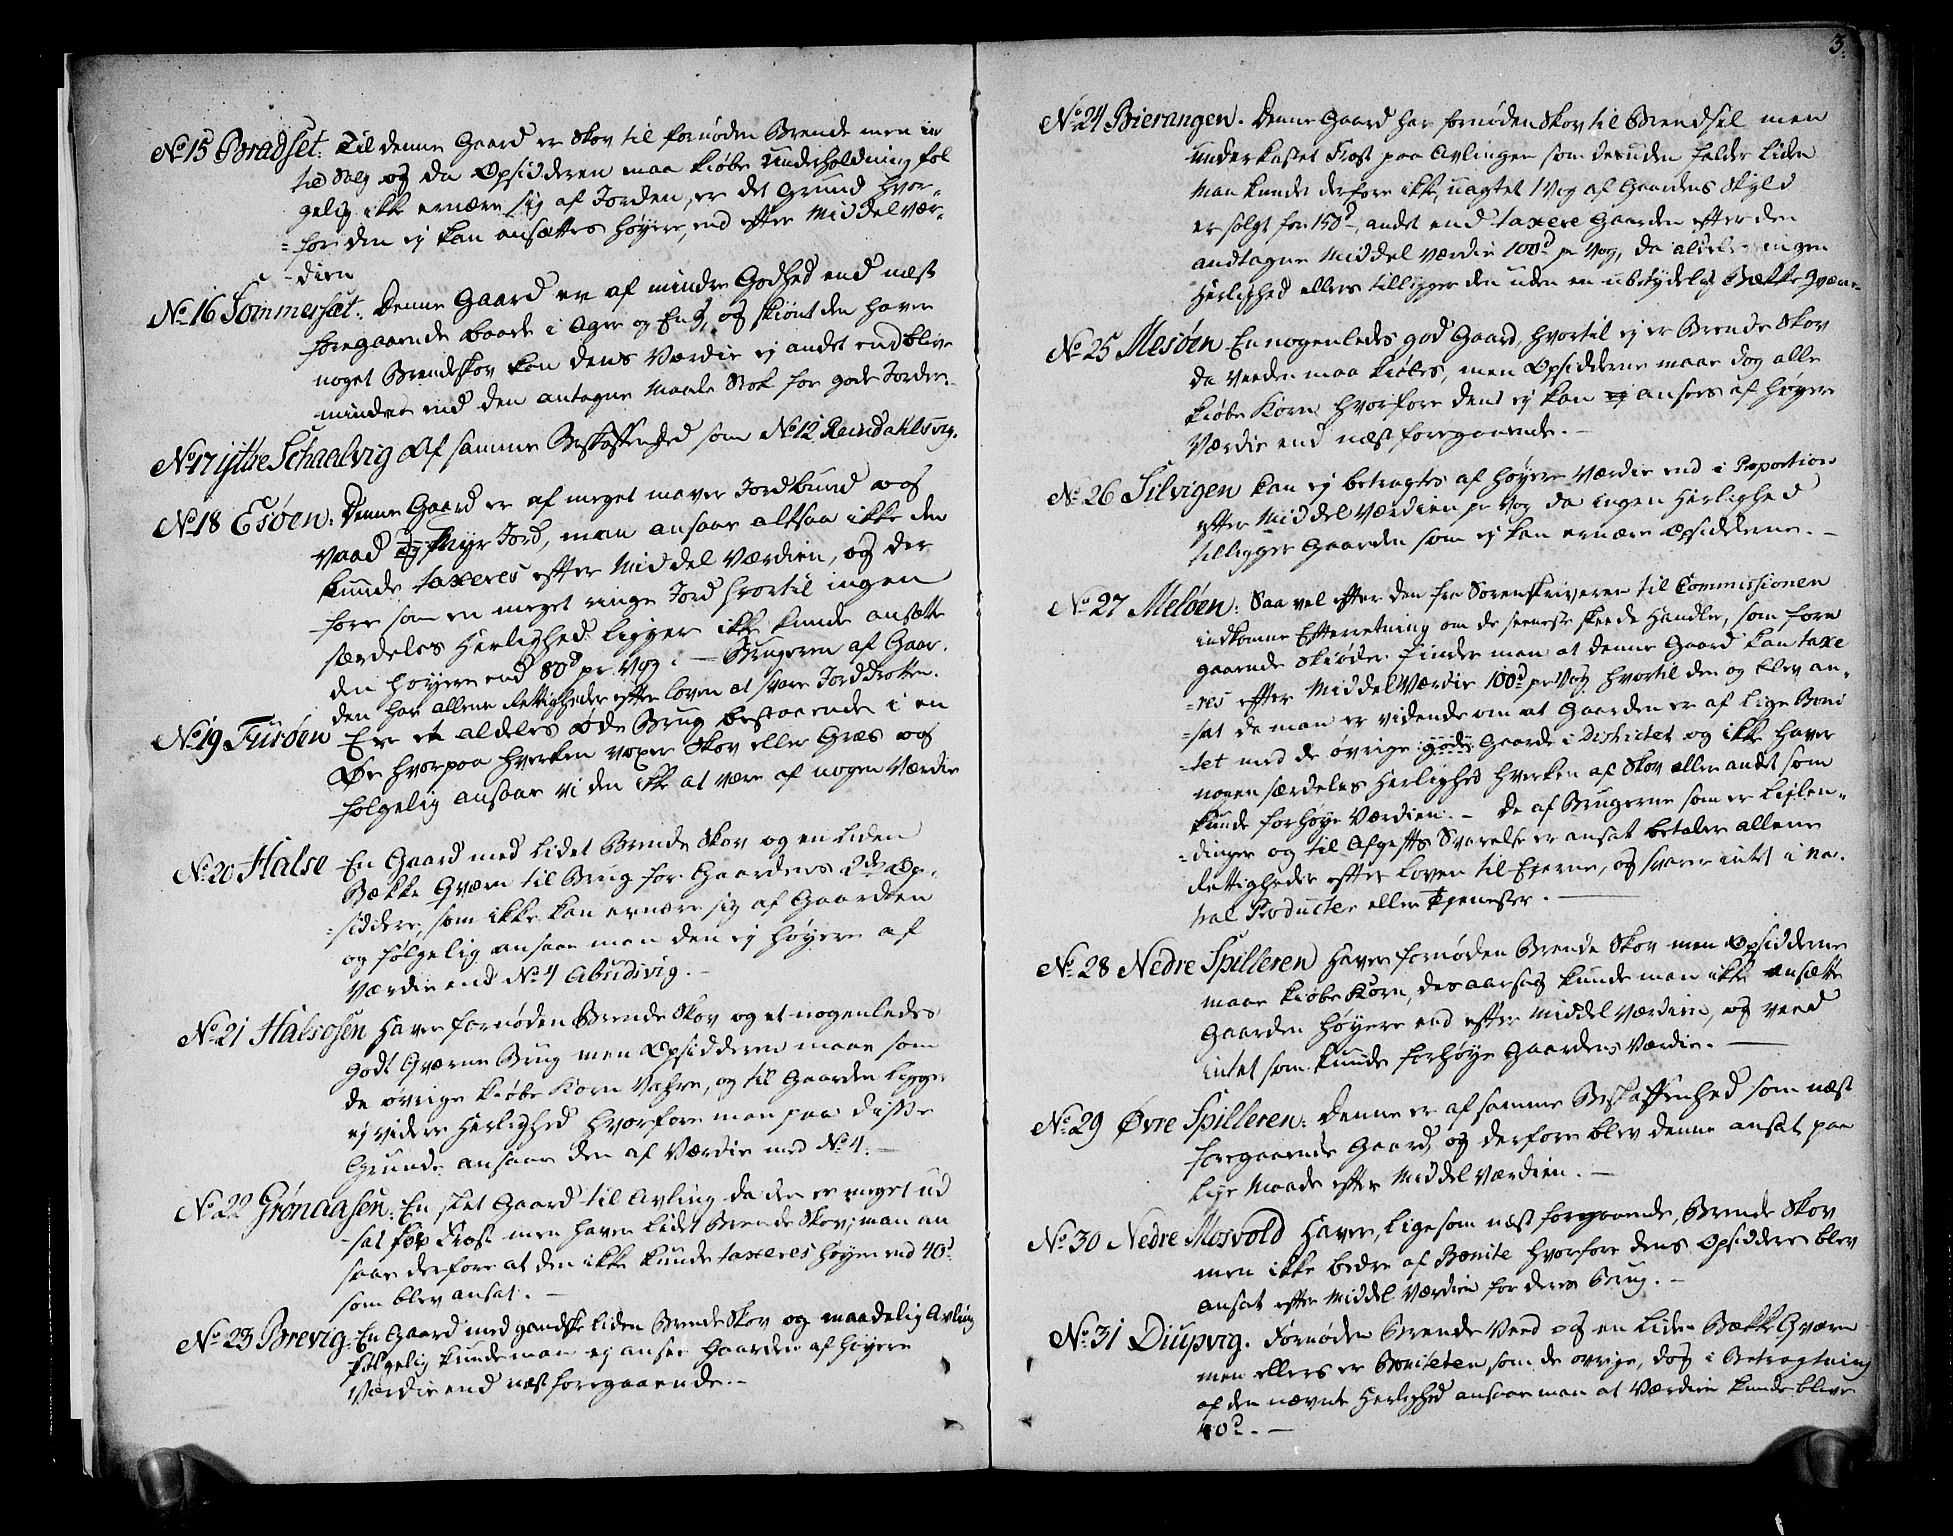 No 15 Bradset: Til denne Gaard er Skov til fornøden Brende men ei
til Salg og da Opsidderen maa kiøbe underholdning føl
gelig ikke ernære sig af Jorden, er det Grund hvor-
=for den ej kan ansættes høyere, end efter Middelvær-
=dien
No 16 Sommerset: Denne Gaard er af mindre Godhed end næst
foregaaende baade i Ager og Eng, og skiønt den haver
noget Brendeskov kan dens Værdie ej andet end blive
mindre end den antagne Maale Stok for gode Jorder.
No 17 ijttre Schaalvig Af samme Beskaffenhed som No 12 Reindahlsvig.
No 18 Esøen: Denne Gaard er af meget maver Jordbund og
vaad Myr Jord, man ansaae altsaa ikke den
kunde taxeres efter Middel Værdien, og der
fore som en meget ringe Jord hvortil ingen
særdeles Herlighed ligger ikke kunde ansætte
den høyere end 80d pr Vog. — Brugeren af Gaar.
den har allene Rettigheder efter loven at svare Jorddrotten.
No 19 Furøen Er et aldeles øde Brug bestaaende i en
Øe hvorpaa hverken voxer Skov eller Græs og
følgelig ansaae vi den ikke at være af nogen Værdie
No 20 Halse En Gaard med lidet Brende Skov og en liden
Bække Qværn til Brug for Gaardens 2de Op-
=siddere, som ikke kan ernære sig af Gaarden
og følgelig ansaae man den ej høyere af
Værdie end No 4 Abudivig. –
No 21 Halsosen Haver fornøden Brende Skov og et nogenledes
godt Qværne Brug men Opsidderen maae som
de øvrige kiøbe Korn Vahre, og til Gaarden ligger
ej videre Herlighed hvorfore man paa disse
Grunde ansaae den af Værdie med No 4. —
No 22 Grønaasen: En slet Gaard til Avling da den er meget ud
sat for Frost men haver lidet Brende Skov, man an
saae derfore at den ikke kunde taxeres høyer end 40d
som blev ansat. –
No 23 Brevig: En Gaard med gandske liden Brende Skov og maadelig Avling
følgelig kunde man ej ansee Gaarden af høyere
Værdie end næst foregaaende. –
3.
No 24 Bierangen. Denne Gaard har fornøden Skov til Brendsel men
underkastet Frost paa Avlingen som desuden falder liden
Man kunde derfore ikke, uagtet 1 Vog af Gaardens Skyld
er solgt for 150d, andet end taxere Gaarden efter den
andtagne Middel Værdie 100d pr Vog, da aldeles ingen
Herlighed ellers tilligger den uden en ubetydelig Bække-Qværn.
No 25 Mesøen En nogenledes god Gaard, hvortil ej er Brende Skov
da Veeden maa kiøbes, men Opsidderne maae dog alle
kiøbe Korn hvorfore den ej kan ansees af høyere
Værdie end næst foregaaende. –
No 26 Silvigen kan ej betragtes af høyere Værdie end i Proportion
efter Middel Værdien pr Vog da ingen Herlighed
tilligger Gaarden som ej kan ernære Opsidderne. –
No 27 Meløen: Saa vel efter den fra Sorenskriveren til Commissionen
indkomne Efterretning om de seeneste skeede Handler, som fore
gaaende Skiøder finder man at denne Gaard kan taxe
=res efter Middel Værdie 100d pr Vog hvortil den og blev an-
=sat da man er vidende om at Gaarden er af lige Boni
=tet med de øvrige gode Gaarde i Districtet og ikke haver
nogen særdeles Herlighed hverken af Skov eller andet som
kunde forhøye Værdien. – De af Brugerne som er Leylen-
=dinger og til Afgifts Svarelse er ansat betaler allene
Rettigheder efter Loven til Ejerne, og svarer intet i Na-
tural Producter eller Tjenester. —
No 28 Nedre Spilleren Haver fornøden Brende Skov men Opsidderne
maae kiøbe Korn, des aarsag kunde man ikke ansætte
Gaarden høyere end efter Middel Værdien, og veed
intet som kunde forhøye Gaardens Værdie. —
No 29 Øvre Spilleren: Denne er af samme Beskaffenhed som næst
foregaaende Gaard, og derfore blev denne ansat paa
lige Maade efter Middel Værdien. –
No 30 Nedre Mosvold Haver, ligesom næst foregaaende, Brende Skov
men ikke bedre af Bonite hvorfore dens Opsiddere blev
ansat efter Middel Værdien for deres Brug. –
No 31 Diupvig. Fornøden Brende Veed og en liden Bække Qværn
men ellers er Boniteten som de øvrige, dog i Betragtning
af den nævnte Herlighed ansaae man at Værdien kunde blive
40d. –